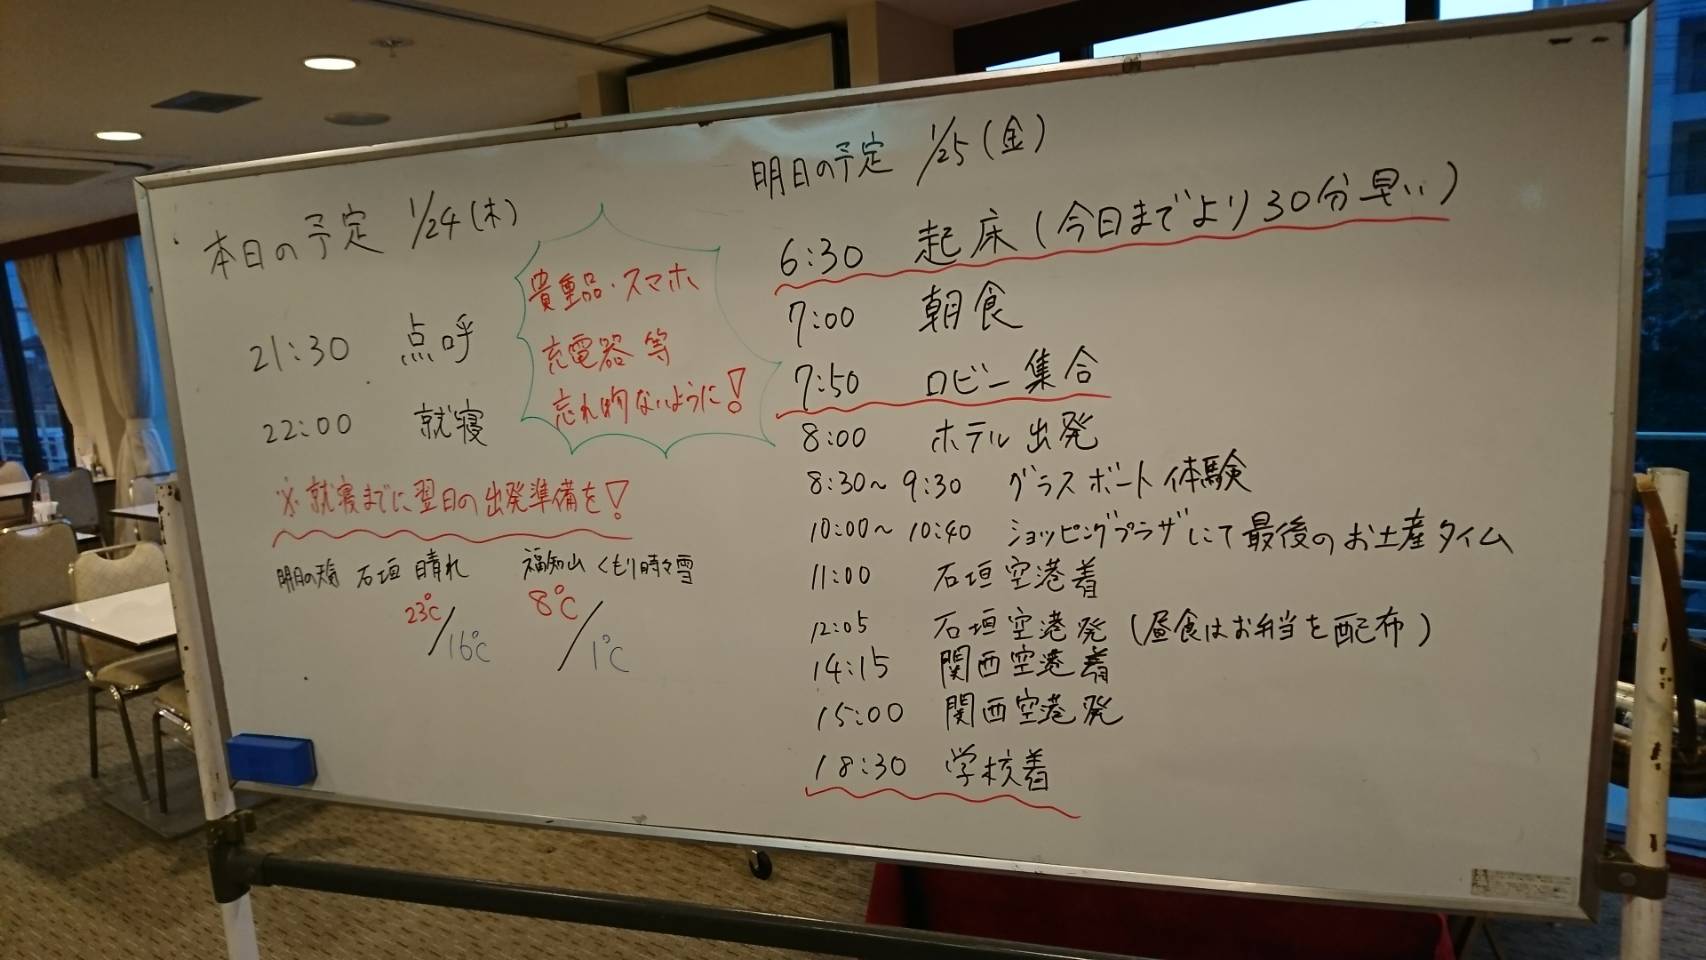 本日の予定 1/24(木)
21:30 点呼
22:00 就寝
貴重品・スマホ
充電器 等
忘れ物ないように!
※就寝までに翌日の出発準備を!
明日の天気 石垣 晴れ 福知山 くもり時々雪
23℃/16℃ 8℃/1℃
明日の予定 1/25(金)
6:30 起床(今日までより30分早い)
7:00 朝食
7:50 ロビー集合
8:00 ホテル出発
8:30~9:30 グラスボート体験
10:00~10:40 ショッピングプラザにて最後のお土産タイム
11:00 石垣空港着
12:05 石垣空港発(昼食はお弁当を配布)
14:15 関西空港着
15:00 関西空港発
18:30 学校着